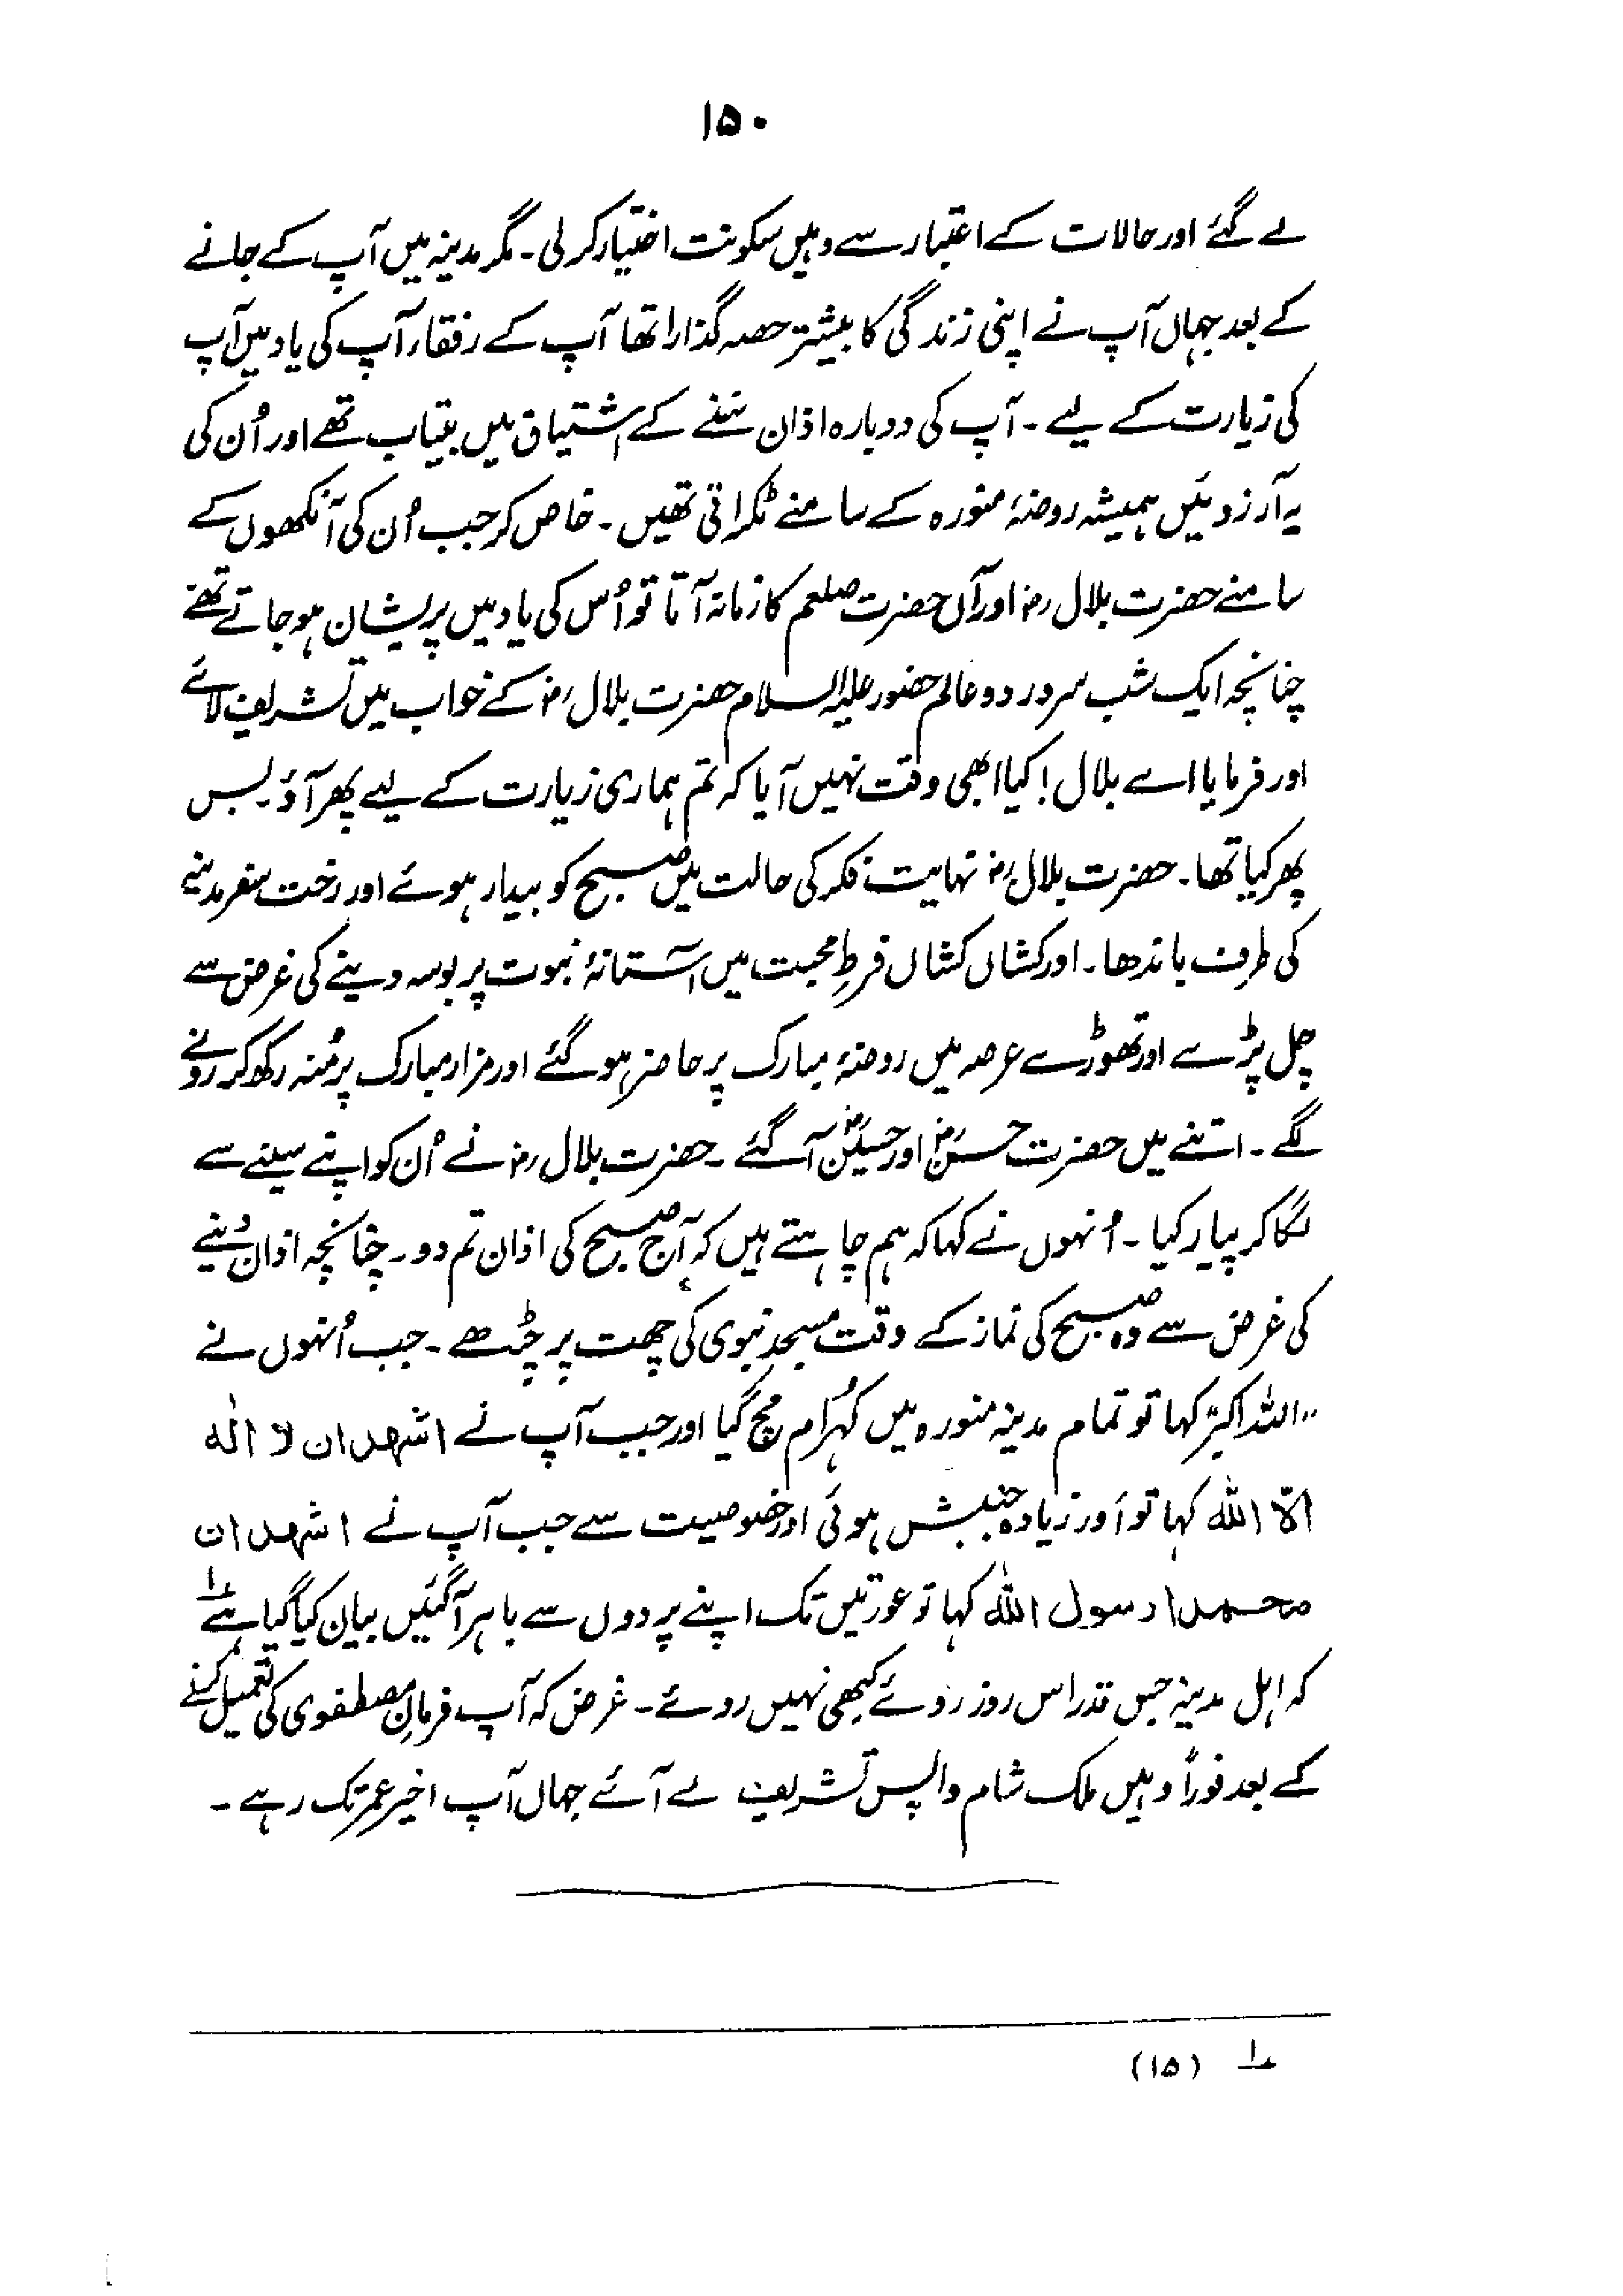 ۱۵۰
لے گئے اور حالات کے اعتبار سے وہیں سکونت اختیار کر لی۔ مگر مدینہ میں آپ کے جانے
کے بعد جہاں آپ نے اپنی زندگی کا بیشتر حصہ گذارا تھا آپ کے رفقاء، آپ کی یاد میں آپ
کی زیارت کے لیے۔ آپ کی دوبارہ اذان سننے کے اشتیاق میں بیتاب تھے اور اُن کی
یہ آرزوئیں ہمیشہ روضۂ منورہ کے سامنے ٹکراتی تھیں۔ خاص کر جب اُن کی آنکھوں کے
سامنے حضرت بلال رضؓ اور آں حضرت صلعم کا زمانہ آتا تو اُس کی یاد میں پریشان ہو جاتے تھے
چنانچہ ایک شب سرور دو عالم حضور علیہ السلام حضرت بلال رضؓ کے خواب میں تشریف لائے
اور فرمایا اے بلال! کیا ابھی وقت نہیں آیا کہ تم ہماری زیارت کے لیے پھر آؤ۔ بس
پھر کیا تھا۔ حضرت بلال رضؓ نہایت فکر کی حالت میں صبح کو بیدار ہوئے اور رخت سفر مدینے
کی طرف باندھا۔ اور کشاں کشاں فرطِ محبت میں آستانۂ نبوت پر بوسہ دینے کی غرض سے
چل پڑے اور تھوڑے عرصہ میں روضۂ مبارک پر حاضر ہو گئے اور مزار مبارک پر مُنہ رکھ کر رونے
لگے۔ اتنے میں حضرت حسنؓ اور حسینؓ آ گئے۔ حضرت بلال رضؓ نے اُن کو اپنے سینے سے
لگا کر پیار کیا۔ اُنہوں نے کہا کہ ہم چاہتے ہیں کہ آج صبح کی اذان تم دو۔ چنانچہ اذان دینے
کی غرض سے وہ صبح کی نماز کے وقت مسجدِ نبوی کی چھت پر چڑھے۔ جب اُنہوں نے
"اللہ اکبر" کہا تو تمام مدینہ منورہ میں کہُرام مچ گیا اور جب آپ نے اشھد ان لا الہ
الا اللہ کہا تو اَور زیادہ جنبش ہوئی اور خصوصیت سے جب آپ نے اشھد ان
محمدا رسول اللہ کہا تو عورتیں تک اپنے پردوں سے باہر آ گئیں بیان کیا گیا ہے ؎۱
کہ اہل مدینہ جس قدر اس روز روئے کبھی نہیں روئے۔ غرض کہ آپ فرمانِ مصطفوی کی تعمیل کرنے
کے بعد فوراً وہیں ملک شام واپس تشریف لے آئے جہاں آپ اخیر عمر تک رہے۔
؎۱ (۱۵)